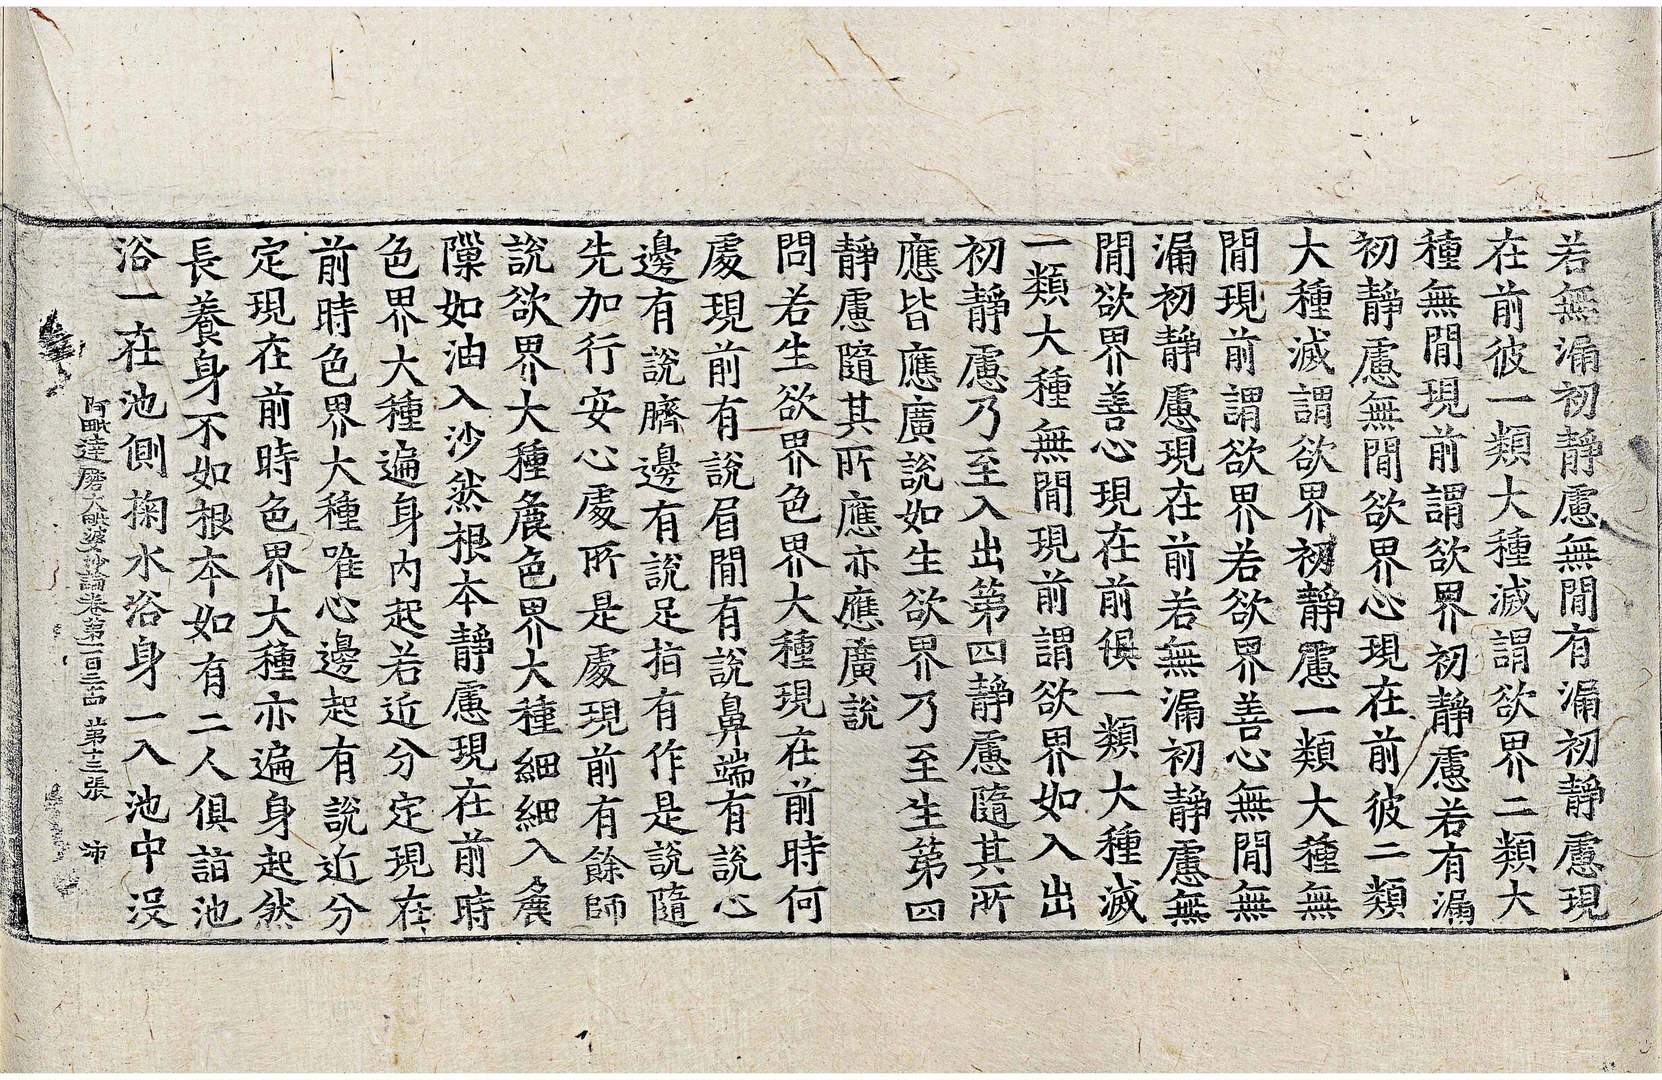 若無漏初靜慮無閒有漏初靜慮現
在前彼一類大種滅謂欲界二類大
種無閒現前謂欲界初靜慮若有漏
初靜慮無閒欲界心現在前彼二類
大種滅謂欲界初靜慮一類大種無
閒現前謂欲界若欲界善心無閒無
漏初靜慮現在前若無漏初靜慮無
閒欲界善心現在前俱一類大種滅
一類大種無閒現前謂欲界如入出
初靜慮乃至入出第四靜慮隨其所
應皆應廣說如生欲界乃至生第四
靜慮隨其所應亦應廣說
問若生欲界色界大種現在前時何
處現前有說眉閒有說鼻端有說心
邊有說臍邊有說足指有作是說隨
先加行安心處所是處現前有餘師
說欲界大種麁色界大種細細入麁
隟如油入沙然根本靜慮現在前時
色界大種遍身內起若近分定現在
前時色界大種唯心邊起有說近分
定現在前時色界大種亦遍身起然
長養身不如根本如有二人俱詣池
浴一在池側掬水浴身一入池中沒
阿毗達磨大毗婆沙論卷第一百三四 第十三張 沛